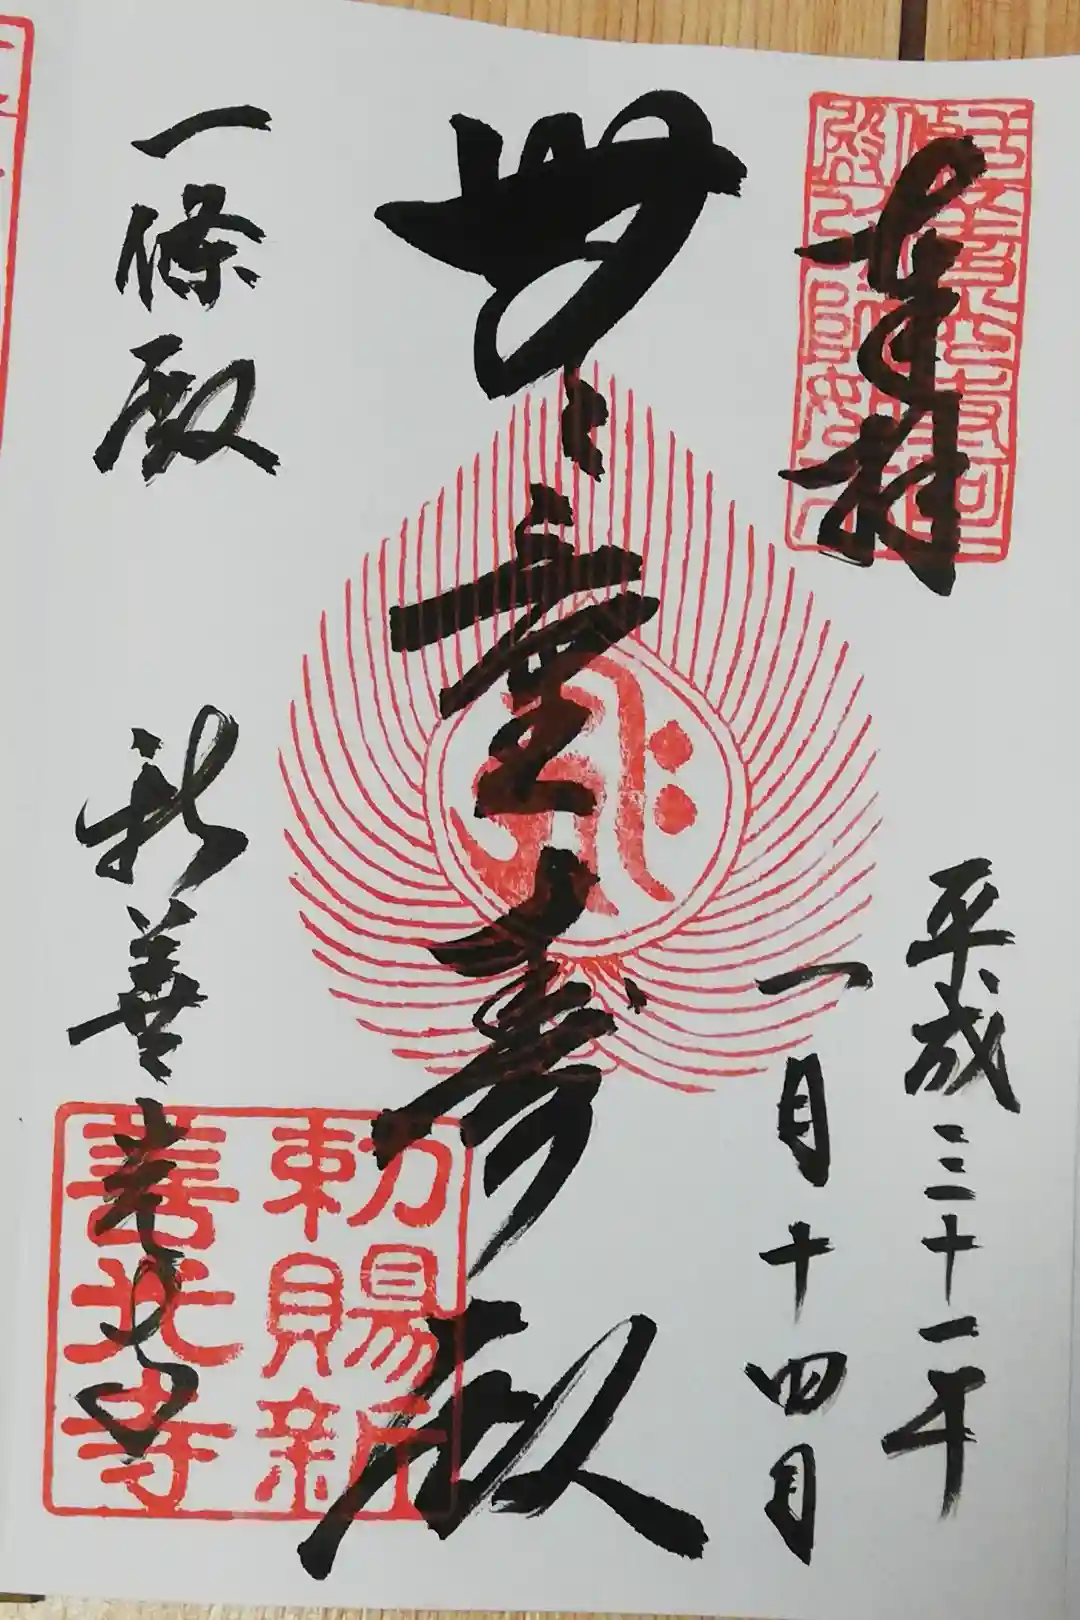 奉拝
平成三十一年
一月十四日
無量壽殿
一條殿 新善光寺
勅賜新
善光寺